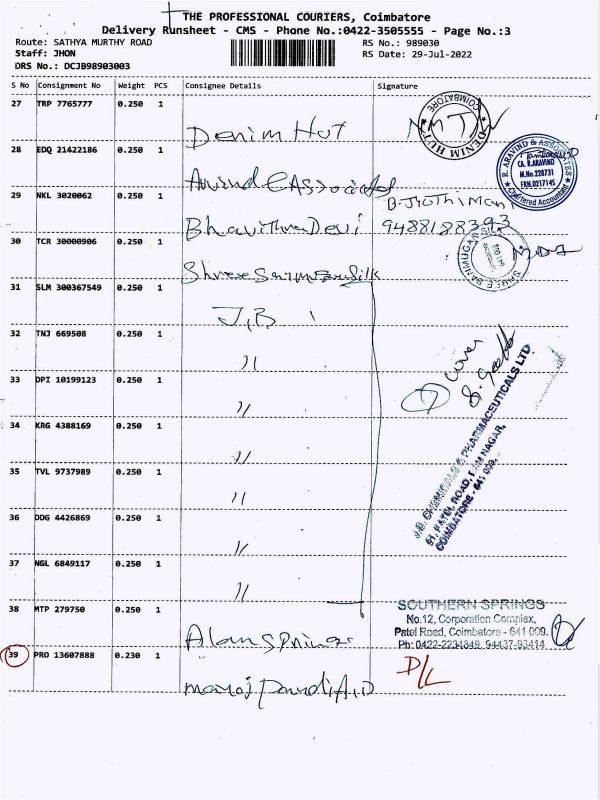 THE PROFESSIONAL COURIERS, Coimbatore
Delivery Runsheet - CMS - Phone No.:0422-3505555 - Page No.:3
Route: SATHYA MURTHY ROAD
RS No.: 989030
Staff: JHON
RS Date: 29-Jul-2022
DRS No.: DCJB98903003
S No Consignment No Weight PCS Consignee Details Signature
27 TRP 7765777 0.250 1
Denim Hut
COIMBATORE
DENIM HUT
28 EDQ 21422186 0.250 1
Arvind & Associates
R. ARAVIND & ASSOCIATES
CA. R.ARAVIND
M.No.228731
FRN.021714S
Chartered Accountant
29 NKL 3020062 0.250 1
B. Jothimani
Bhavithra Devi 9488188393
30 TCR 30000906 0.250 1
Shree Silk
31 SLM 300367549 0.250 1
J.B
32 TNJ 669508 0.250 1
"
33 DPI 10199123 0.250 1
"
7 cover
34 KRG 4388169 0.250 1
"
35 TVL 9737989 0.250 1
"
J.B. CHEMICALS & PHARMACEUTICALS LTD
51, PATEL ROAD, RAM NAGAR,
COIMBATORE - 641 009.
36 DDG 4426869 0.250 1
"
37 NGL 6849117 0.250 1
"
38 MTP 279750 0.250 1
SOUTHERN SPRINGS
No.12, Corporation Complex,
Patel Road, Coimbatore - 641 009.
Ph: 0422-2234849, 94437-93414
39 PRO 13607888 0.230 1
D/L
Manoj Pandi A.D